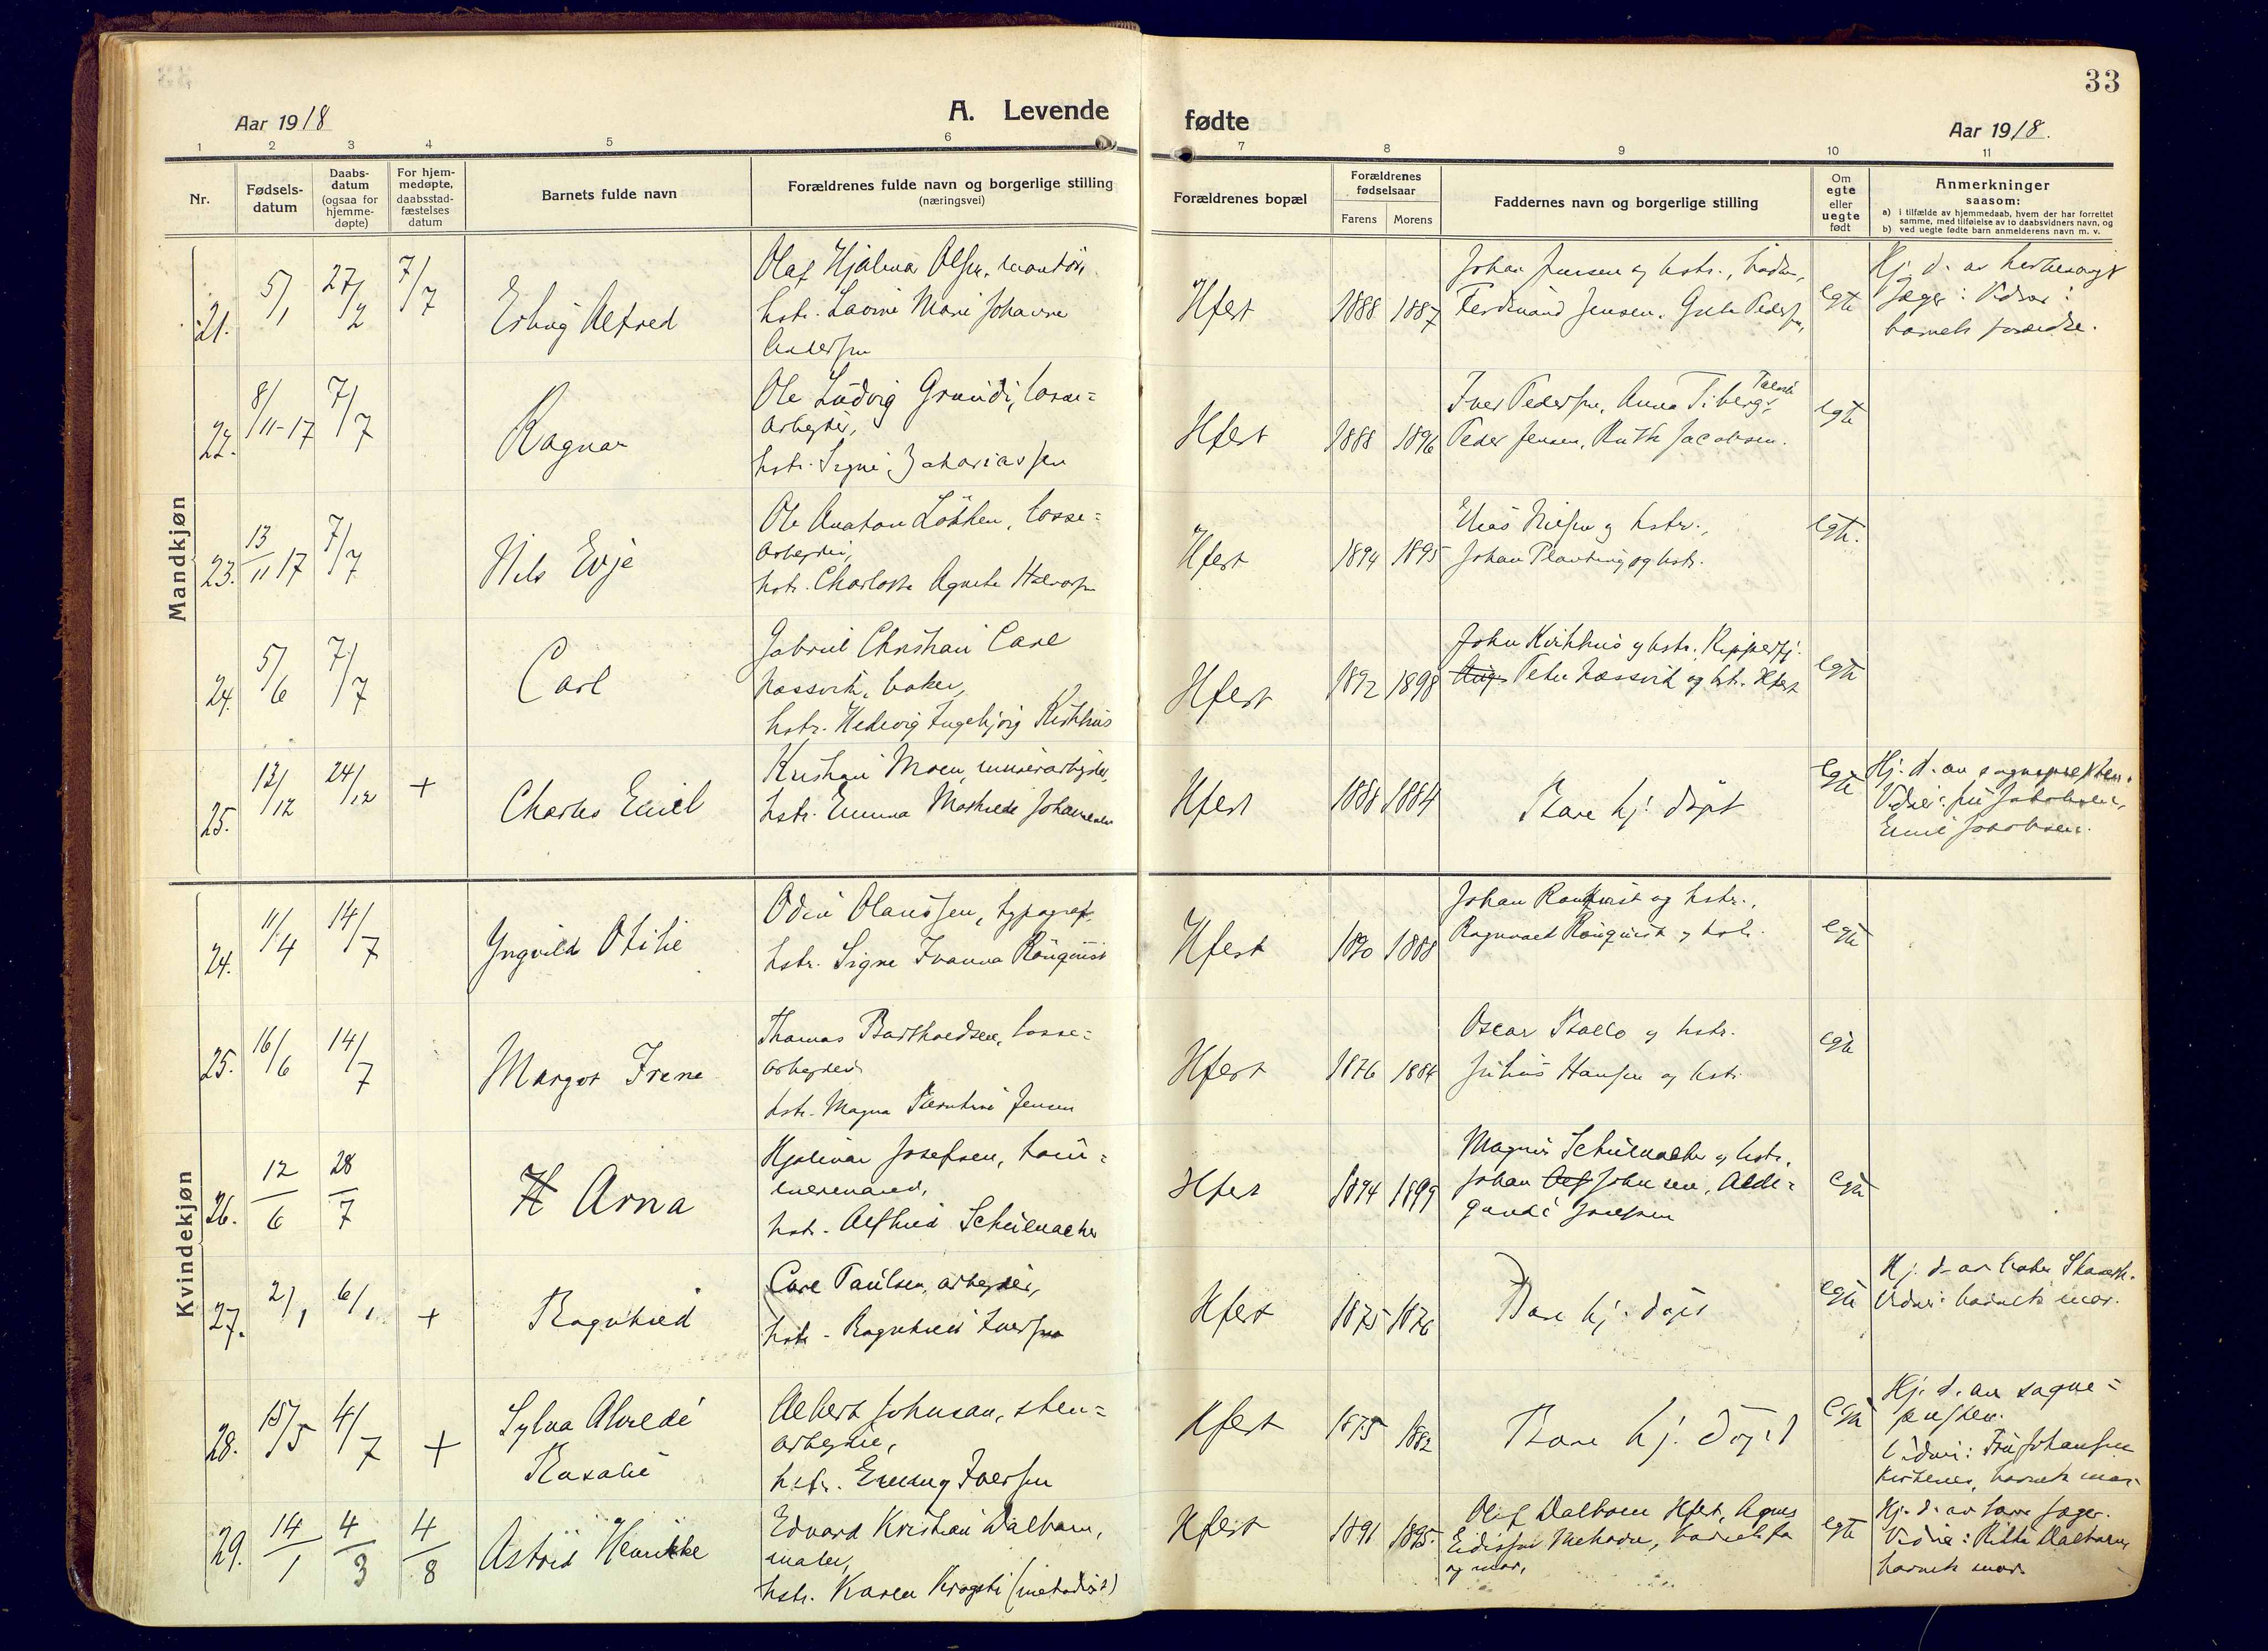 33
Aar 1918
A. Levende
fødte
Aar 1918.
1 2 3 4 5 6 7 8 9 10 11
Nr.
Fødsels-
datum
Daabs-
datum
(ogsaa for
hjemme-
døpte)
For hjem-
medøpte,
daabsstad-
fæstelses
datum
Barnets fulde navn
Forældrenes fulde navn og borgerlige stilling
(næringsvei)
Forældrenes bopæl
Forældrenes
fødselsaar
Farens Morens
Faddernes navn og borgerlige stilling
Om
egte
eller
uegte
født
Anmerkninger
saasom:
a) i tilfælde av hjemmedaab, hvem der har forrettet
samme, med tilføielse av to daabsvidners navn, og
b) ved uegte fødte barn anmelderens navn m. v.
Mandkjøn
21. 5/1 27/2 7/7
Alfred
Olaf Hjalmar Olsen, montør,
hstr. Marie Johanne
Andersen
Hfest 1888 1887
Johan Jensen og hstr.,
Ferdinand Jensen,
egte
Hj. d. av
Jæger:
barnets
22. 8/11-17 7/7
Ragnar
Ole Ludvig Grundi, losse=
arbeider,
hstr. Signe Zakariassen
Hfest 1888 1896
Iver Pedersen, Anna Tiberg,
Peder Jensen, Ruth Jacobsen.
egte
23. 13/11 17 7/7
Nils Evje
Ole Anaton Løkken, losse=
arbeider,
hstr. Charlotte Agnete Halvorsen
Hfest 1894 1895
Elias Nilsen og hstr.,
Johan Planting og hstr.
egte.
24. 5/6 7/7
Carl
Gabriel Christian Carl
Næssvik, baker,
hstr. Hedevig Ingebjørg Kirkhus
Hfest 1892 1898
John Kirkhus og hstr. Ripperfj.
Peter Næssvik og hstr. Hfest
egte
25. 13/12 24/12 +
Charles Emil
Kristian Moen, murerarbeider,
hstr. Emma Mathilde Johannesen
Hfest 1888 1884
Bare hj. døpt
egte
Hj. d. av sognepresten.
Vidner: fru Jakobsen,
Emil Jakobsen.
Kvindekjøn
24. 11/4 14/7
Yngvild Otilie
Odin Olaussen, typograf,
hstr. Signe Ivanna Rönquist
Hfest 1890 1888
Johan Ronquist og hstr.,
Ragnvald Rönquist og hstr.
egte
25. 16/6 14/7
Margot Irene
Thomas Bartholdsen, losse=
arbeider
hstr. Magna Berntine Jensen
Hfest 1876 1884
Oscar Ballo og hstr.
Julius Hansen og hstr.
egte
26. 12/6 28/7
H Arna
Hjalmar Josefsen, tøm=
mermand,
hstr. Alfhild Schulmacher
Hfest 1894 1899
Magnus Schulmacher og hstr.
Johan Johnsen, Alde=
gunde Josefsen
egte
27. 2/1 6/1 +
Ragnhild
Carl Paulsen, arbeider,
hstr. Ragnhild Iversen
Hfest 1875 1876
Bare hj. døpt
egte
Hj. d. av baker
Vidner: barnets mor.
28. 15/5 4/7 +
Sylva Alvilde
Rosalie
Albert Johnsen, sten=
arbeider,
hstr. Iversen
Hfest 1875 1882
Bare hj. døpt
egte
Hj. d. av sogne=
presten.
Vidner: Fru Johansen
Kirkenes, barnets mor.
29. 14/1 4/3 4/8
Astrid Henrikke
Edvard Kristian Dalbom,
maler,
hstr. Karen Krogsti (metodist)
Hfest 1891 1895
Olaf Dalbom Hfest, Agnes
Mehavn, barnets far
og mor.
egte
Hj. d. av Jæger.
Vidner: Dalbom,
barnets mor.